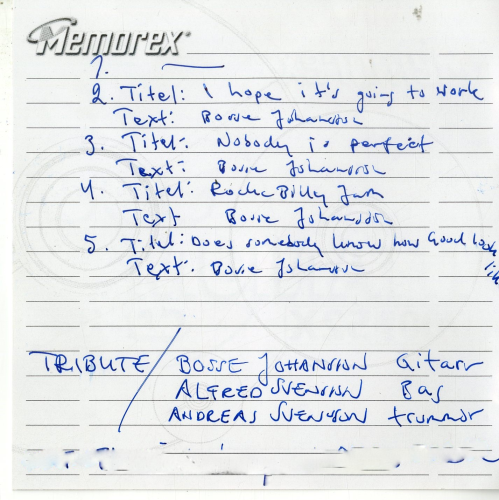 Memorex®
1. —
2. Titel: I hope it's going to work
Text: Bosse Johansson
3. Titel: Nobody is perfect
Text: Bosse Johansson
4. Titel: RockaBilly Jam
Text Bosse Johansson
5. Titel: Does somebody know how Good love
Text: Bosse Johansson
TRIBUTE / BOSSE JOHANSSON Gitarr
ALFRED SVENSSON Bas
ANDREAS SVENSSON trummor